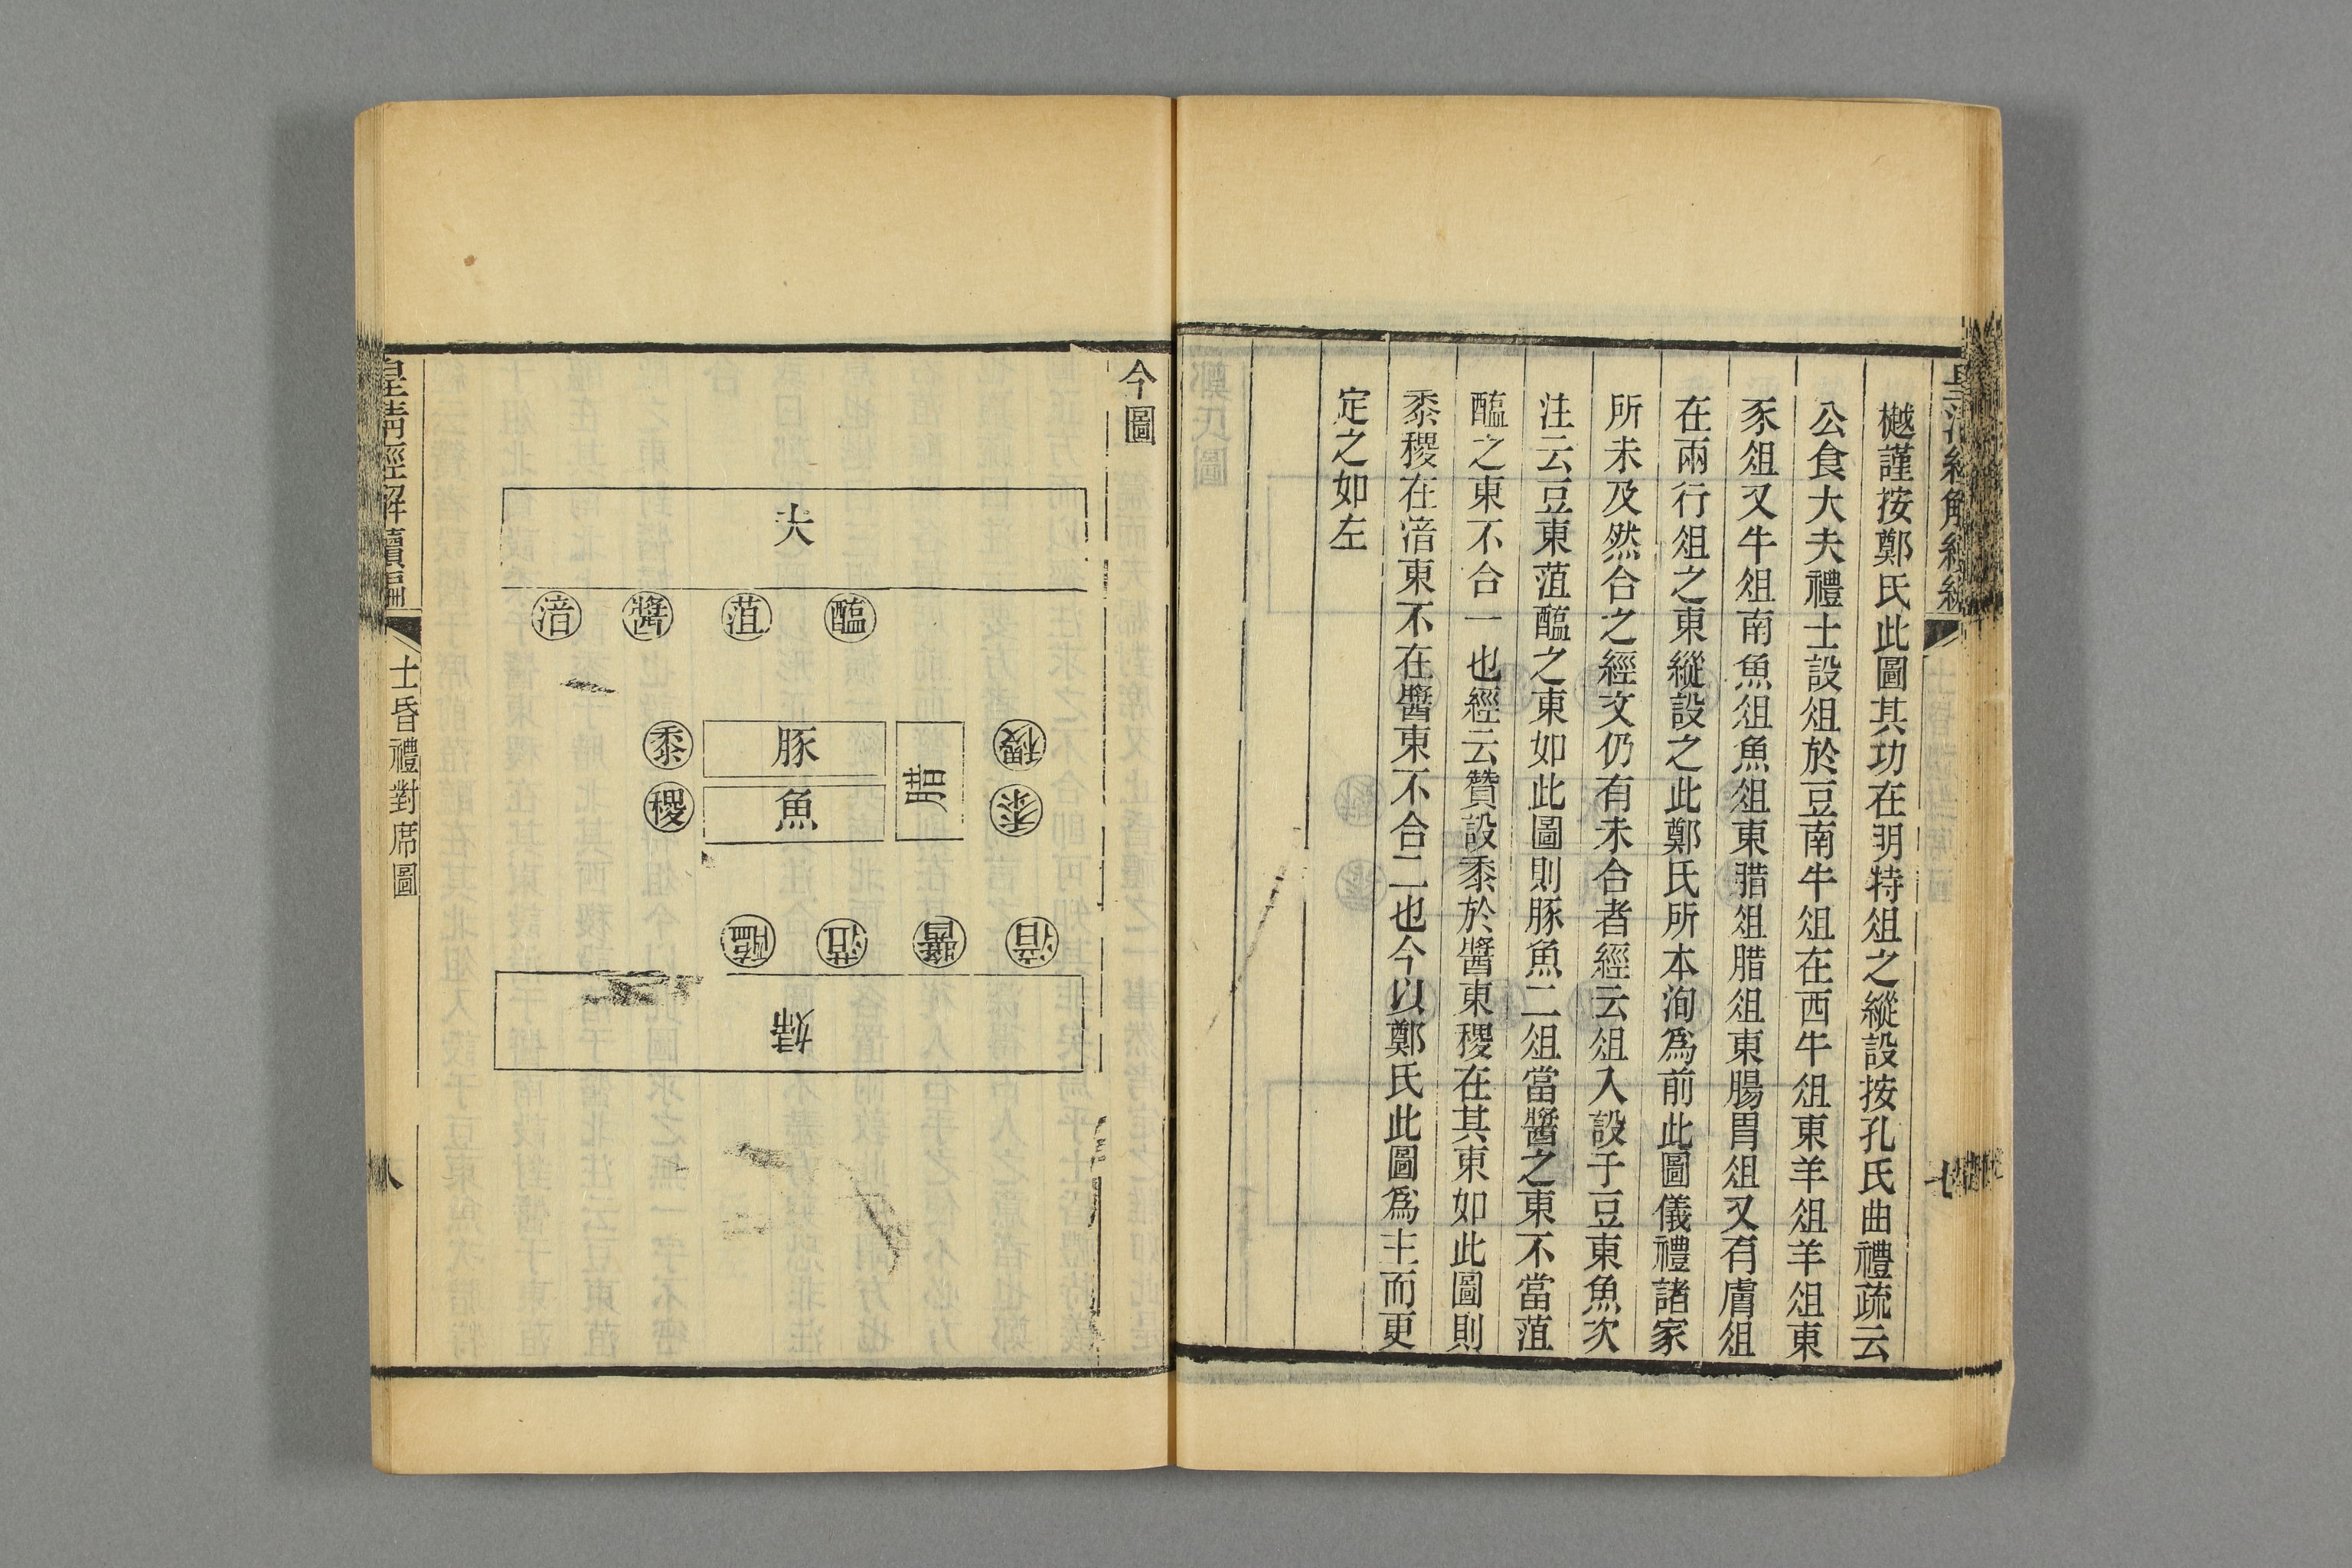 樾謹按鄭氏此圖其功在明特俎之縱設按孔氏曲禮疏云
公食大夫禮士設俎於豆南牛俎在西牛俎東羊俎羊俎東
豕俎又牛俎南魚俎魚俎東腊俎腊俎東腸胃俎又有膚俎
在兩行俎之東縱設之此鄭氏所本洵爲前此圖儀禮諸家
所未及然合之經文仍有未合者經云俎入設于豆東魚次
注云豆東菹醢之東如此圖則豚魚二俎當醬之東不當菹
醢之東不合一也經云贊設黍於醬東稷在其東如此圖則
黍稷在湇東不在醬東不合二也今以鄭氏此圖爲主而更
定之如左
七
今圖
夫
醢
菹
醬
湇
稷
黍
腊
豚
魚
黍
稷
湇
醬
菹
醢
婦
皇清經解續編
士昏禮對席圖
八